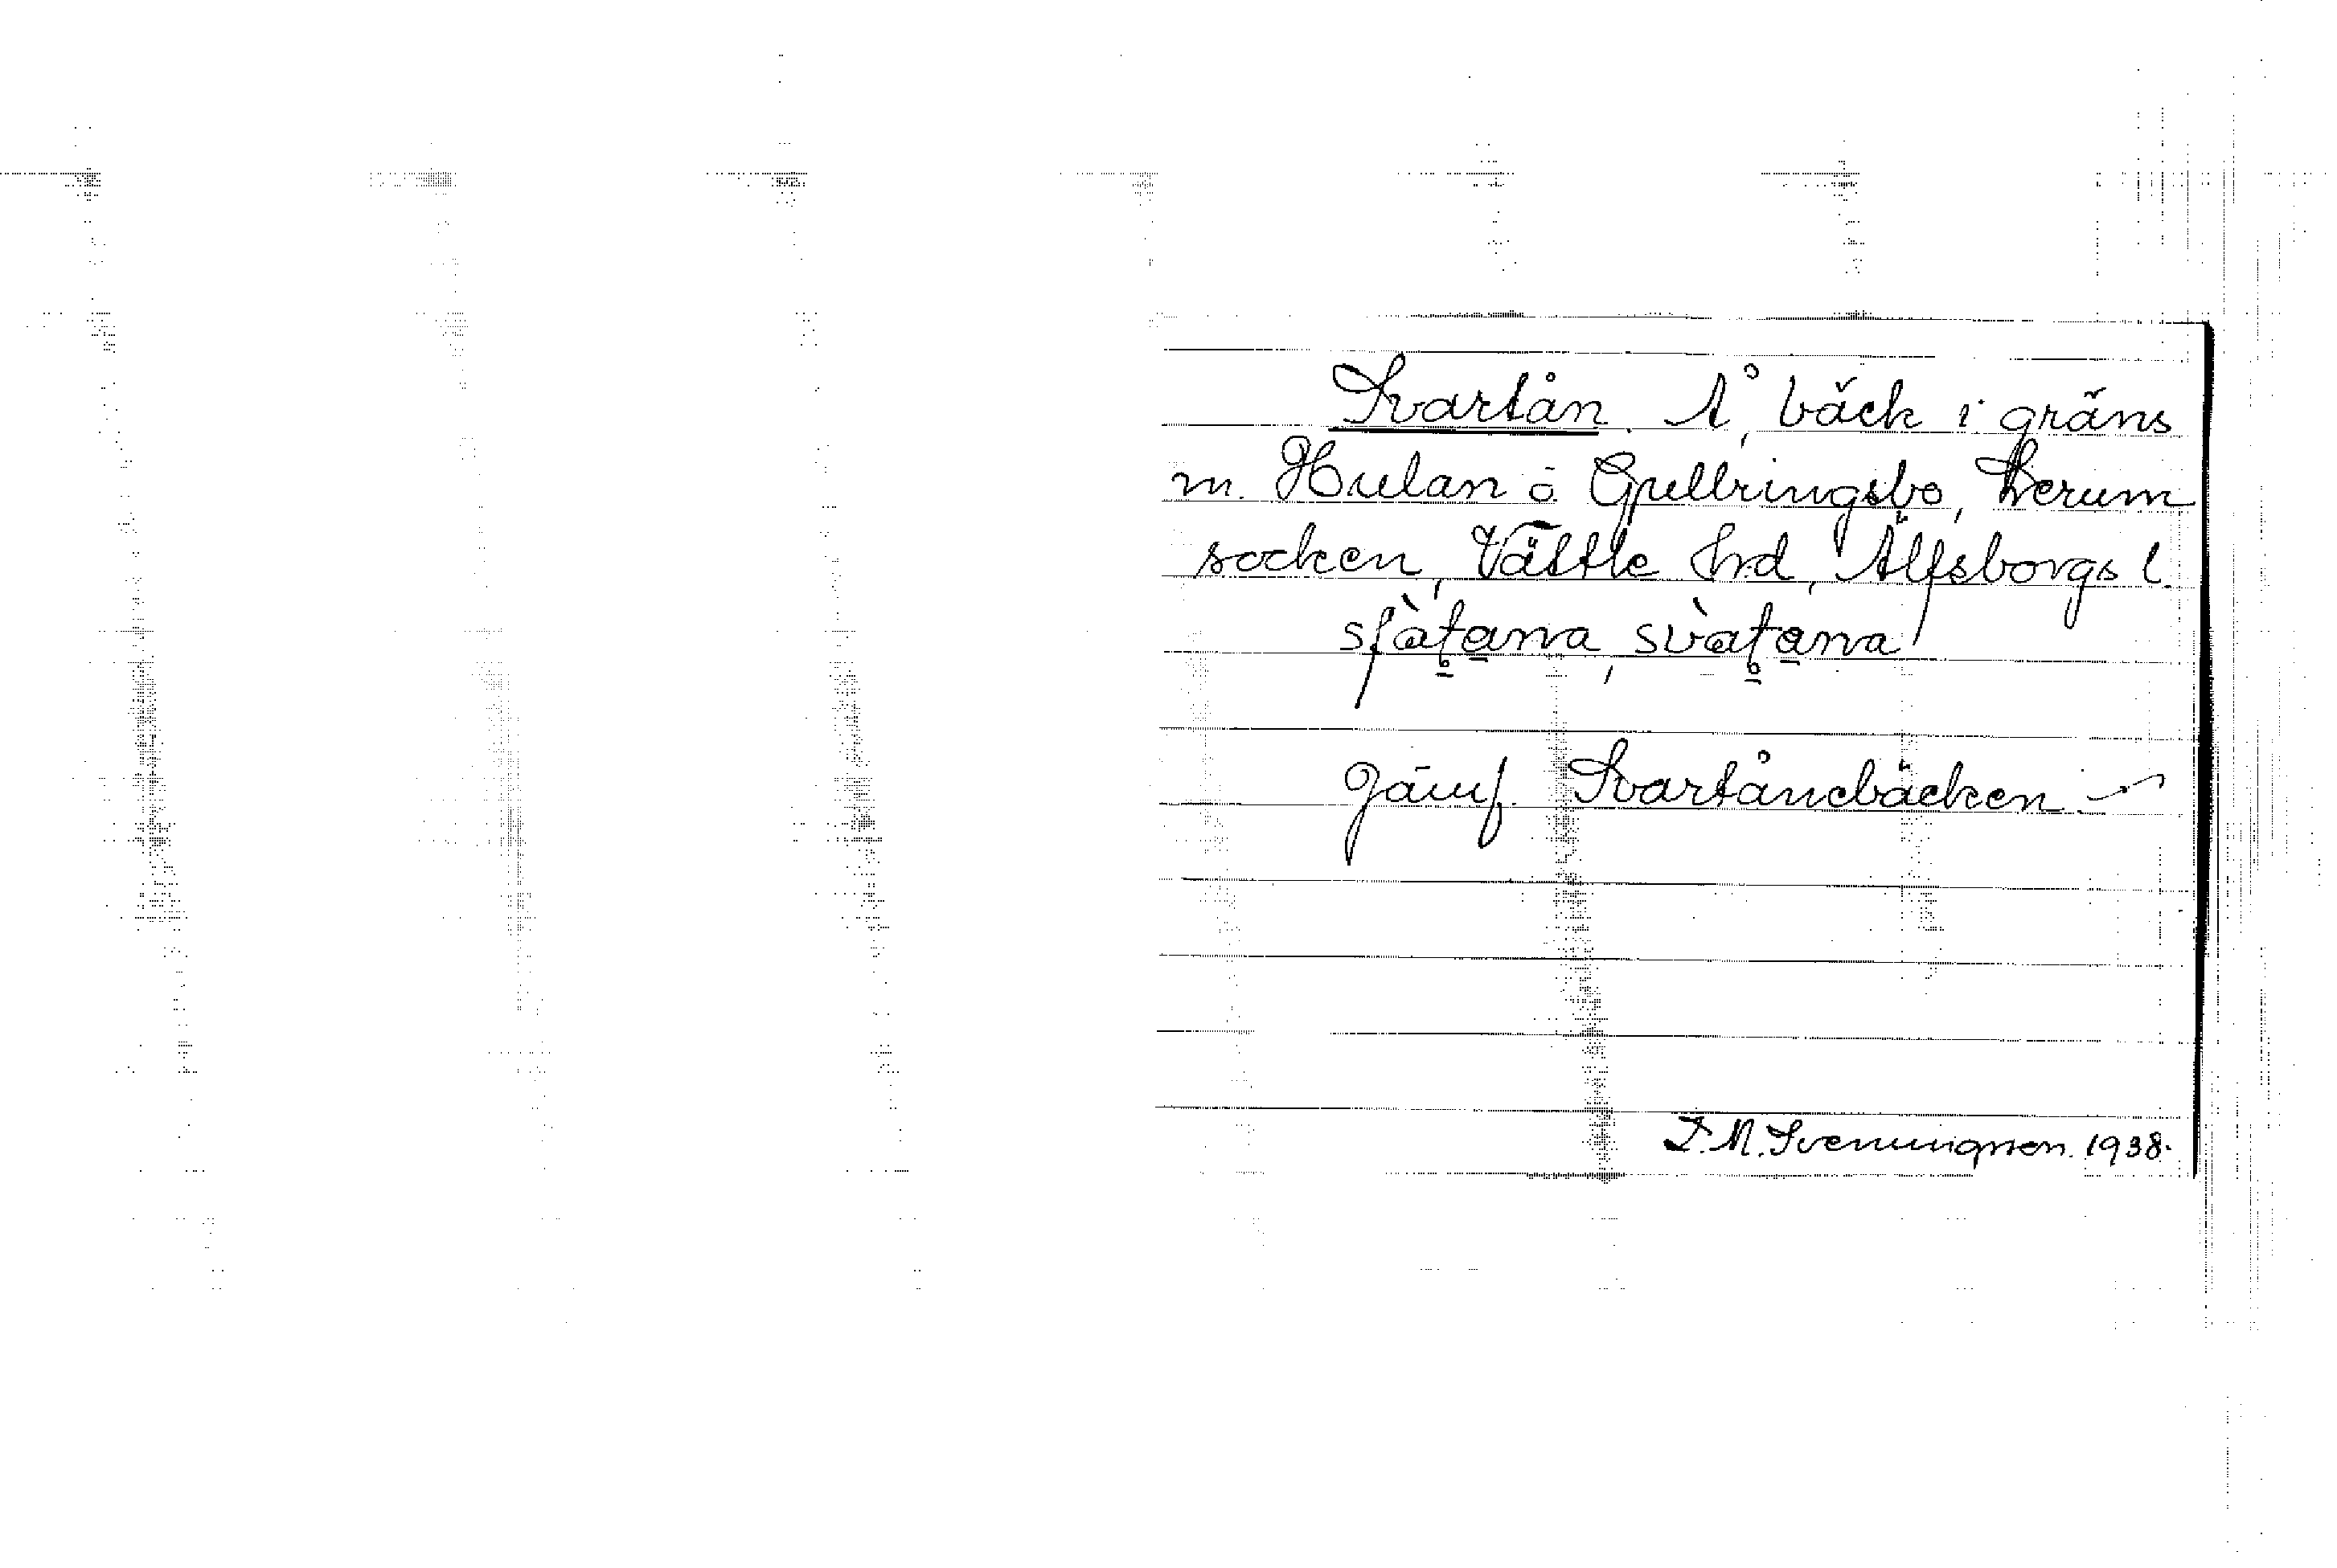 Svartån. Å, bäck i gräns
m. Hulan o. Gullringsbo, Lerum
socken, Vättle hrd, Älfsborgs l.
Jämf. Svartånebäcken
S. M. Svenningsen. 1938.